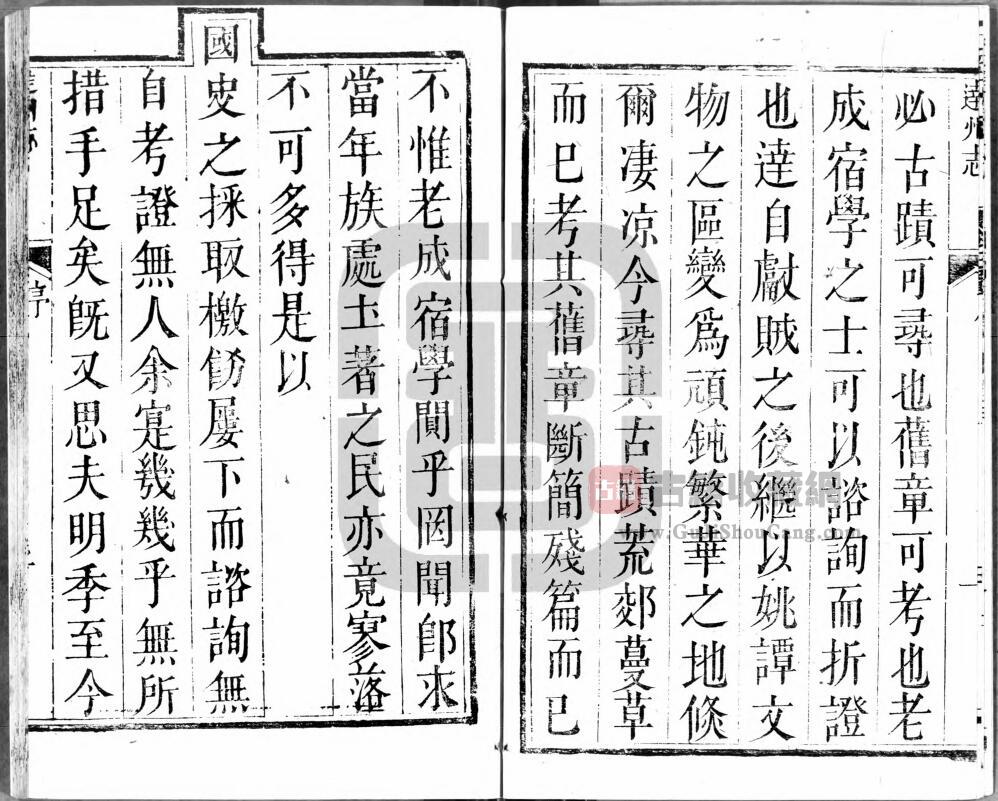 達州志
必古蹟可尋也舊章可考也老
成宿學之士可以諮詢而折證
也逹自獻賊之後繼以姚譚文
物之區變爲頑鈍繁華之地倐
爾淒凉今尋其古蹟荒郊蔓草
而已考其舊章斷簡殘篇而已
不惟老成宿學闃乎罔聞卽求
當年族處土著之民亦竟寥落
不可多得是以
國史之採取檄飭屢下而諮詢無
自考證無人余寔幾幾乎無所
措手足矣旣又思夫明季至今
序
古籍收藏網
www.GuJiShouCang.com